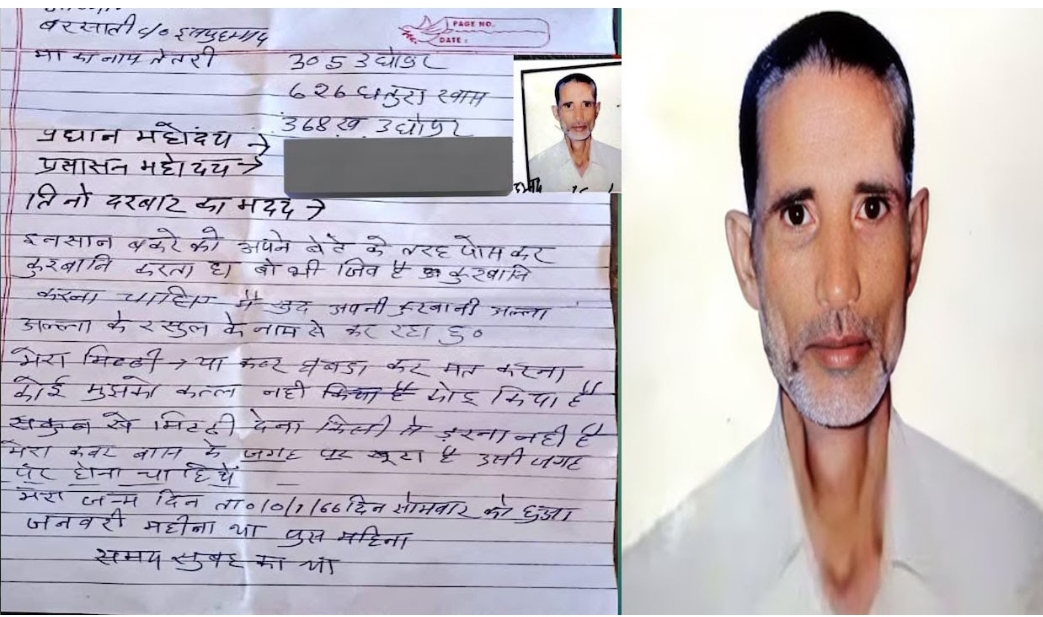 बरसाती c/o
PAGE NO.
DATE :
मा का नाम तेतरी
305 उधोपुर
626 धतुरा खाम
368ख उधोपुर
प्रधान महोदय →
प्रसासन महोदय →
तिनो दरबार का मदद →
इनसान बकरे को अपने बेटे के तरह पोस कर
कुरबानि करता है। वो भी जिव है कुरबानि
करना चाहिए मै खुद अपनी कुरबानी अल्ला
अल्ला के रसुल के नाम से कर रहा हु०
मेरा मिट्टी → या कबर घबडा कर मत करना
कोई मुझको कत्ल नही किया है
सकुन से मिट्टी देना किसी से डरना नही है
मेरा कबर बास के जगह पर खूटा है उसी जगह
पर होना चाहिये
मेरा जन्म दिन ता०/०/1/66 दिन सोमवार को हुआ
जनवरी महीना था पुस महिना
समय सुबह का था